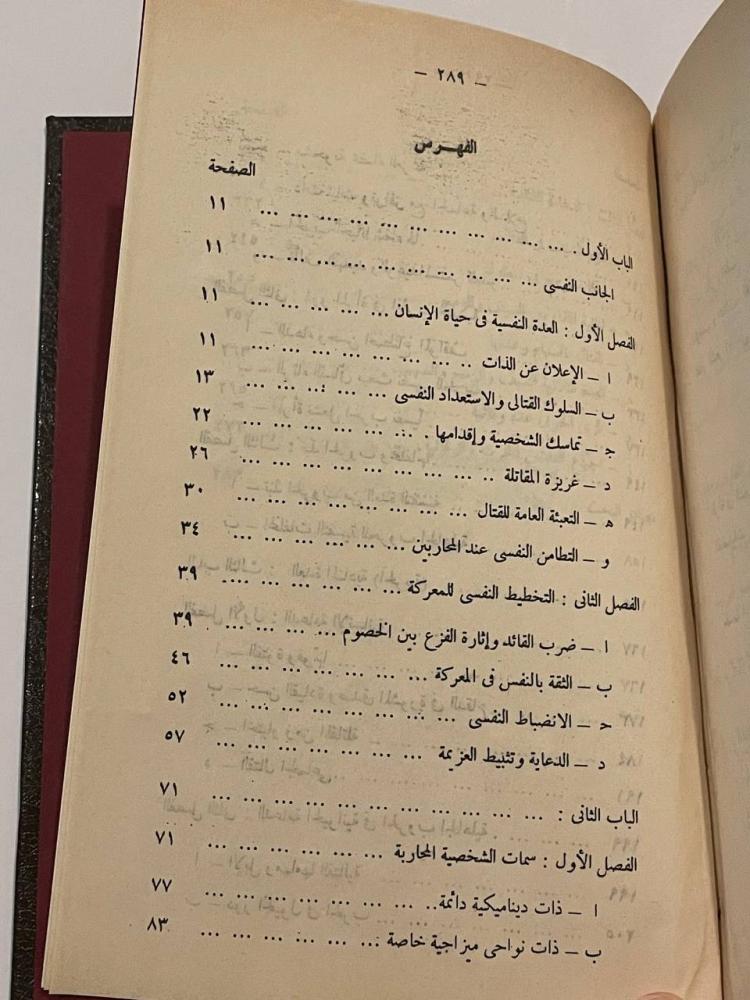 — ٢٨٩ —
الفهرس
الصفحة
الباب الأول . ... ... ... ... ... ... ... ... ... ١١
الجانب النفسى ... ... ... ... ... ... ... ... ... ١١
الفصل الأول : العدة النفسية فى حياة الإنسان ... ... ... ... ... ١١
ا – الإعلان عن الذات .. ... ... ... ... ... ... ... ١١
ب – السلوك القتالى والاستعداد النفسى ... ... ... ... ... ١٣
ج – تماسك الشخصية وإقدامها . ... ... ... ... ... ... ٢٢
د – غريزة المقاتلة .. ... ... ... ... ... ... ... ... ٢٦
ه – التعبئة العامة للقتال ... ... ... ... ... ... ... ... ٣٠
و – التطامن النفسى عند المحاربين ... ... ... ... ... ... ٣٤
الفصل الثانى : التخطيط النفسى للمعركة ... ... ... ... ... ... ٣٩
ا – ضرب القائد وإثارة الفزع بين الخصوم ... ... ... ... ٣٩
ب – الثقة بالنفس فى المعركة ... ... ... ... ... ... ... ٤٦
ح – الانضباط النفسى ... ... ... ... ... ... ... ... ٥٢
د – الدعاية وتثبيط العزيمة ... ... ... ... ... ... ... ٥٧
الباب الثانى : ... ... ... ... ... ... ... ... ... ... ٧١
الفصل الأول : سمات الشخصية المحاربة ... ... ... ... ... ... ٧١
ا – ذات ديناميكية دائمة.. ... ... ... ... ... ... ... ٧٧
ب – ذات نواحى ميزاجية خاصة ... ... ... ... ... ... ٨٣